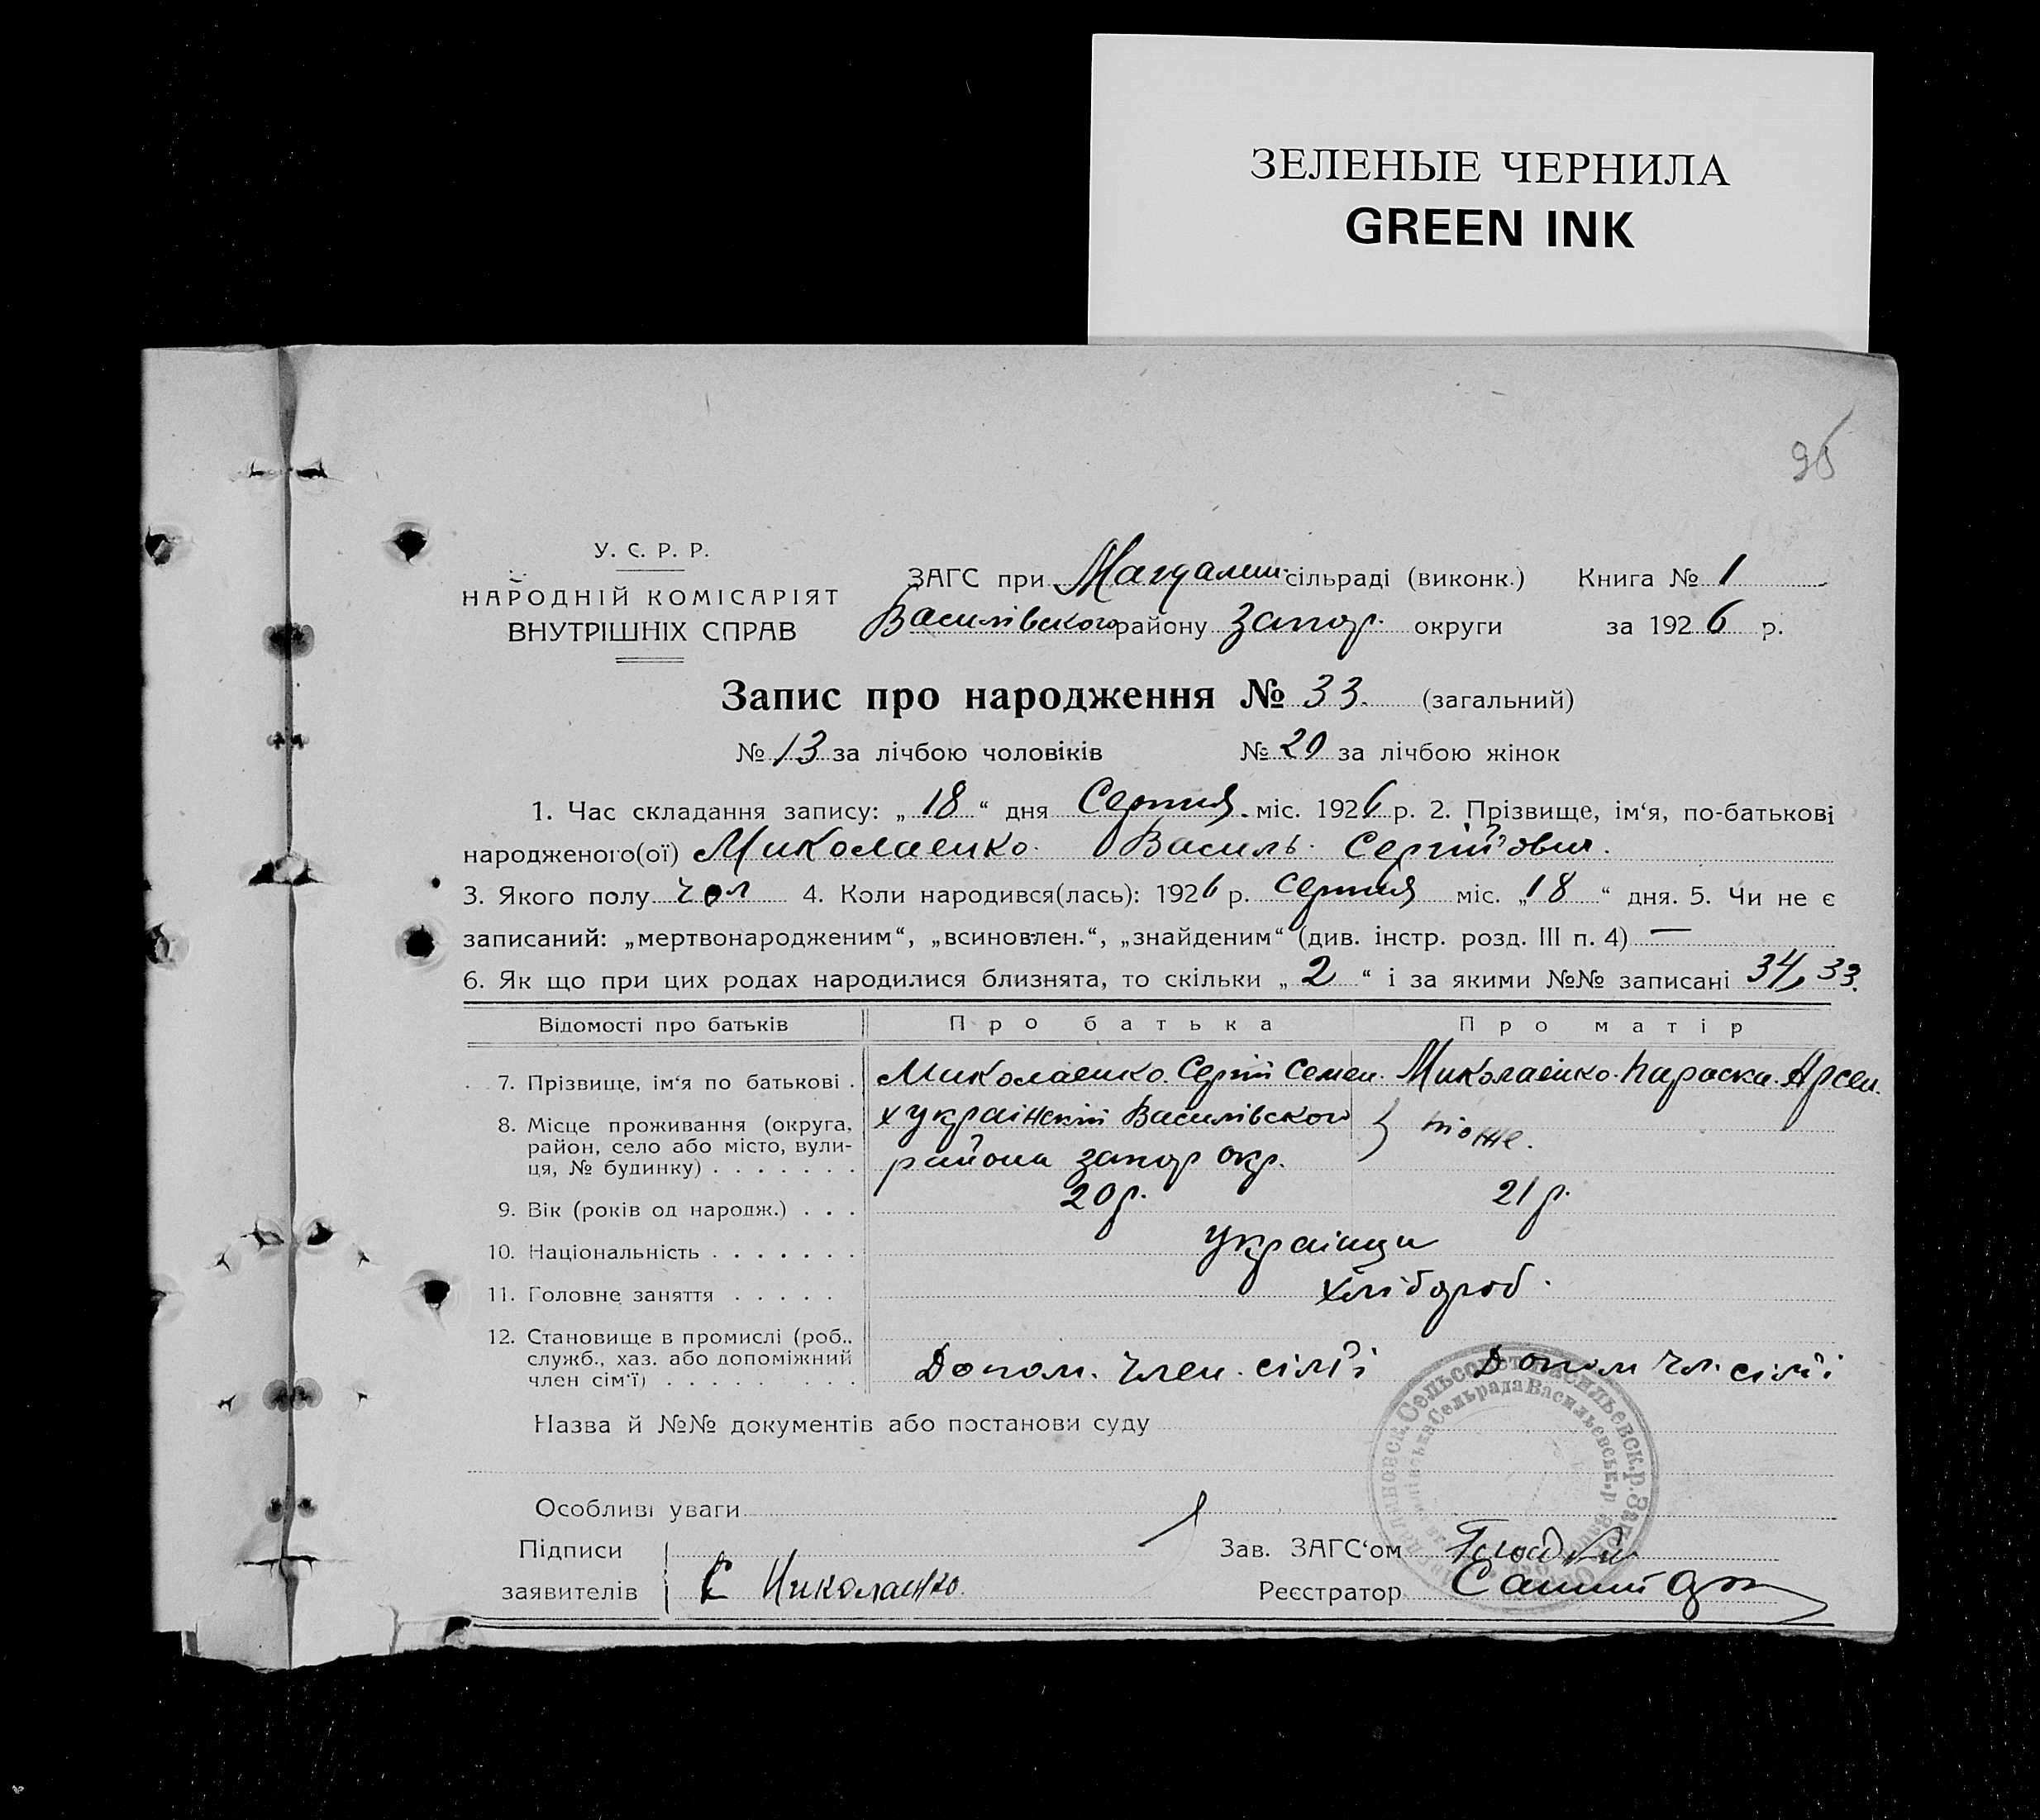 ЗЕЛЕНЫЕ ЧЕРНИЛА
GREEN INK
95
У. С. Р. Р.
НАРОДНІЙ КОМІСАРІЯТ
ВНУТРІШНІХ СПРАВ
ЗАГС при Магдалин. сільраді (виконк.) Книга № 1
Василівского району Запор. округи за 1926 р.
Запис про народження № 33. (загальний)
№ 13 за лічбою чоловіків № 20 за лічбою жінок
1. Час складання запису: „18“ дня Серпня міс. 1926 р. 2. Прізвище, ім‘я, по-батькові
народженого(ої) Миколаенко Василь Сергійович.
3. Якого полу чол 4. Коли народився(лась): 1926 р. серпня міс. „18“ дня. 5. Чи не є
записаний: „мертвонародженим“, „всиновлен.“, „знайденим“ (див. інстр. розд. III п. 4) —
6. Як що при цих родах народилися близнята, то скільки „2“ і за якими №№ записані 34, 33.
Відомості про батьків Про батька Про матір
7. Прізвище, ім‘я по батькові . Миколаенко Сергій Семен. Миколаенко Параска Арсен.
8. Місце проживання (округа, район, село або місто, вулиця, № будинку) . . . . . . . х Український Василівского } тоже.
района запор окр.
9. Вік (років од народж.) . . . 20 р. 21 р.
10. Національність . . . . . . . Українци
11. Головне заняття . . . . . хлібороб.
12. Становище в промислі (роб., служб., хаз. або допоміжний член сім‘ї) . . . . . . . . Допом. член. сім'ї Допом чл. сім'ї
Назва й №№ документів або постанови суду
Особливі уваги
Підписи Зав. ЗАГС‘ом
заявителів С Николаенко. Реєстратор
Сельсовет Васильевск. р. Зап
Сельрада Васильевськ. р.